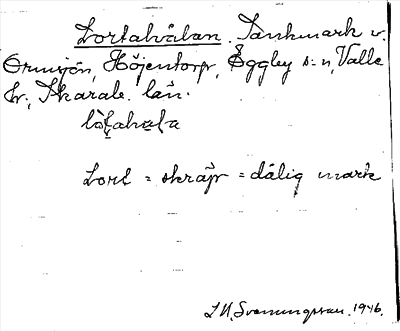 Lortahålan. Tankmark v.
Ormsjön, Höjentorp, Eggby s:n, Valle
hr., Skarab. län.
Lort = skräp = dålig mark
L.H. Svenungsson. 1946.